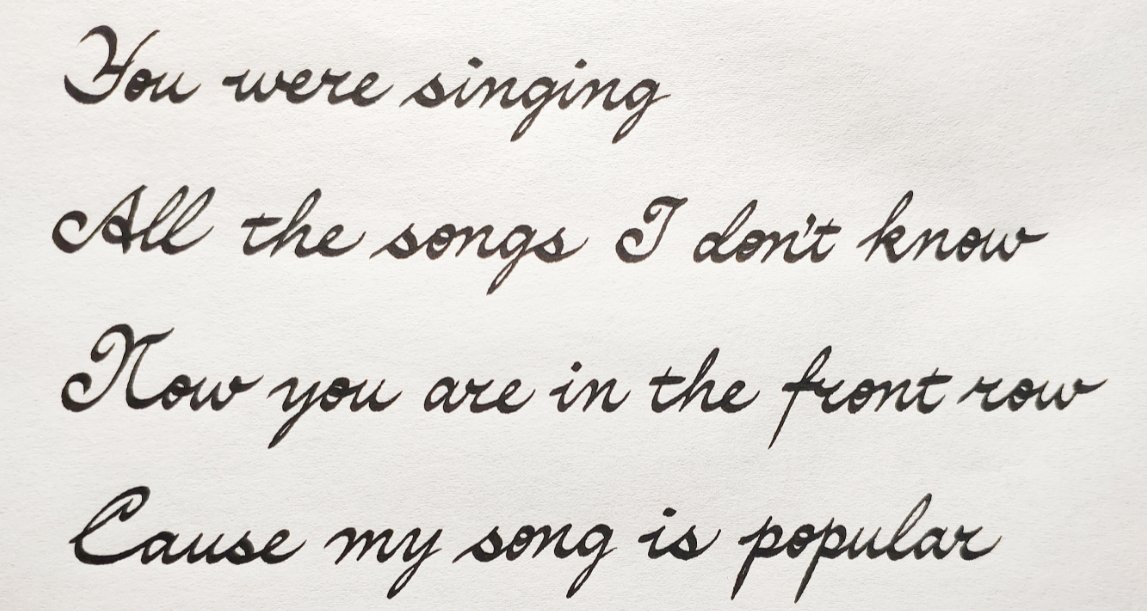 You were singing
All the songs I don't know
Now you are in the front row
Cause my song is popular